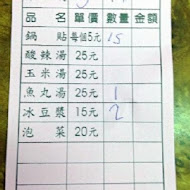 品名 單價 數量 金額
鍋貼 每個5元 15
酸辣湯 25元
玉米湯 25元
魚丸湯 25元 1
冰豆漿 15元 2
泡菜 20元